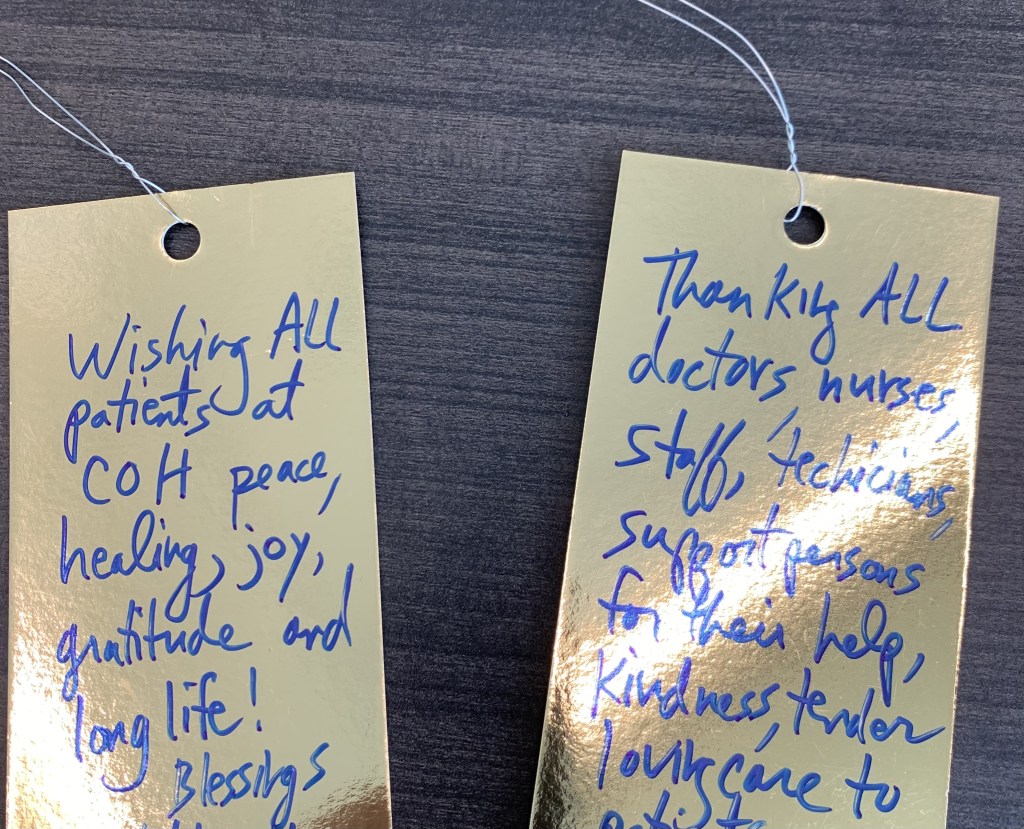 Wishing ALL
patients at
COH peace,
healing, joy,
gratitude and
long life!
Blessings
Thanking ALL
doctors, nurses,
staff, techicians,
support persons
for their help,
kindness, tender
loving care to